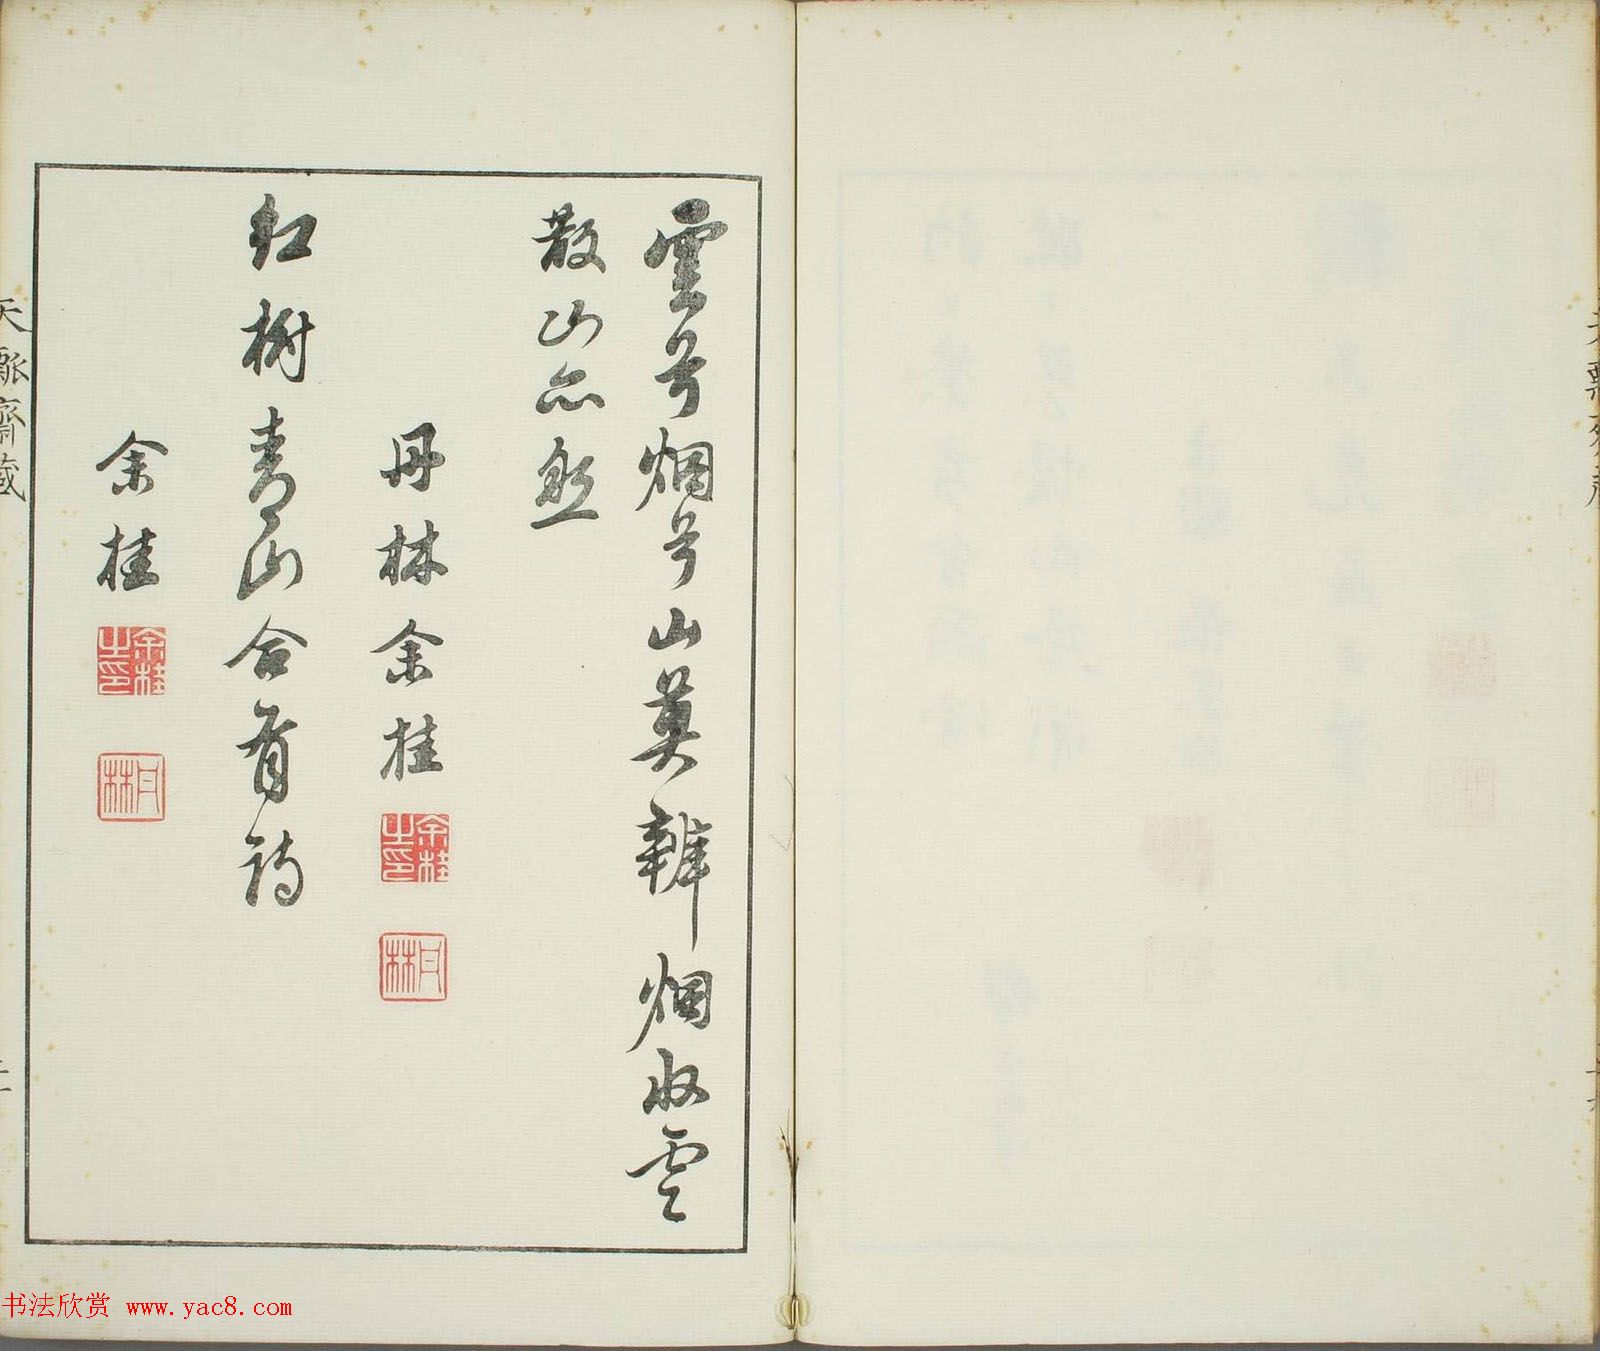 雲兮烟兮山莫辨烟收雲
散山亦然
丹林余桂
余桂之印
丹林
紅樹青山合有詩
余桂
余桂之印
丹林
齋藏
书法欣赏 www.yac8.com